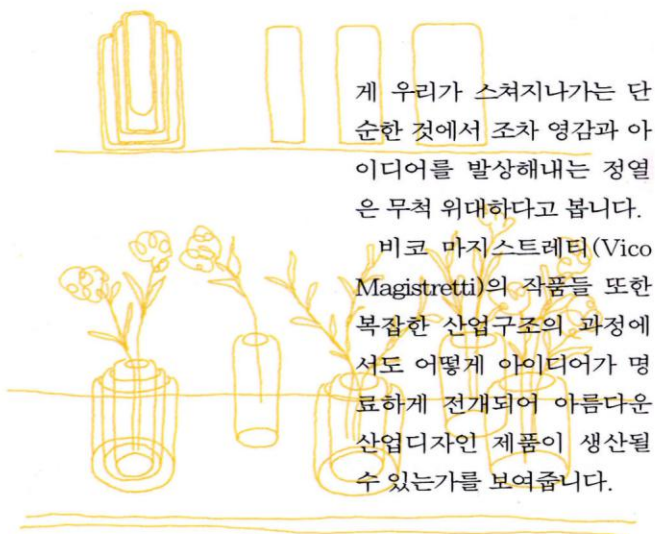 게 우리가 스쳐지나가는 단
순한 것에서 조차 영감과 아
이디어를 발상해내는 정열
은 무척 위대하다고 봅니다.
비코 마지스트레티(Vico
Magistretti)의 작품들 또한
복잡한 산업구조의 과정에
서도 어떻게 아이디어가 명
료하게 전개되어 아름다운
산업디자인 제품이 생산될
수 있는가를 보여줍니다.